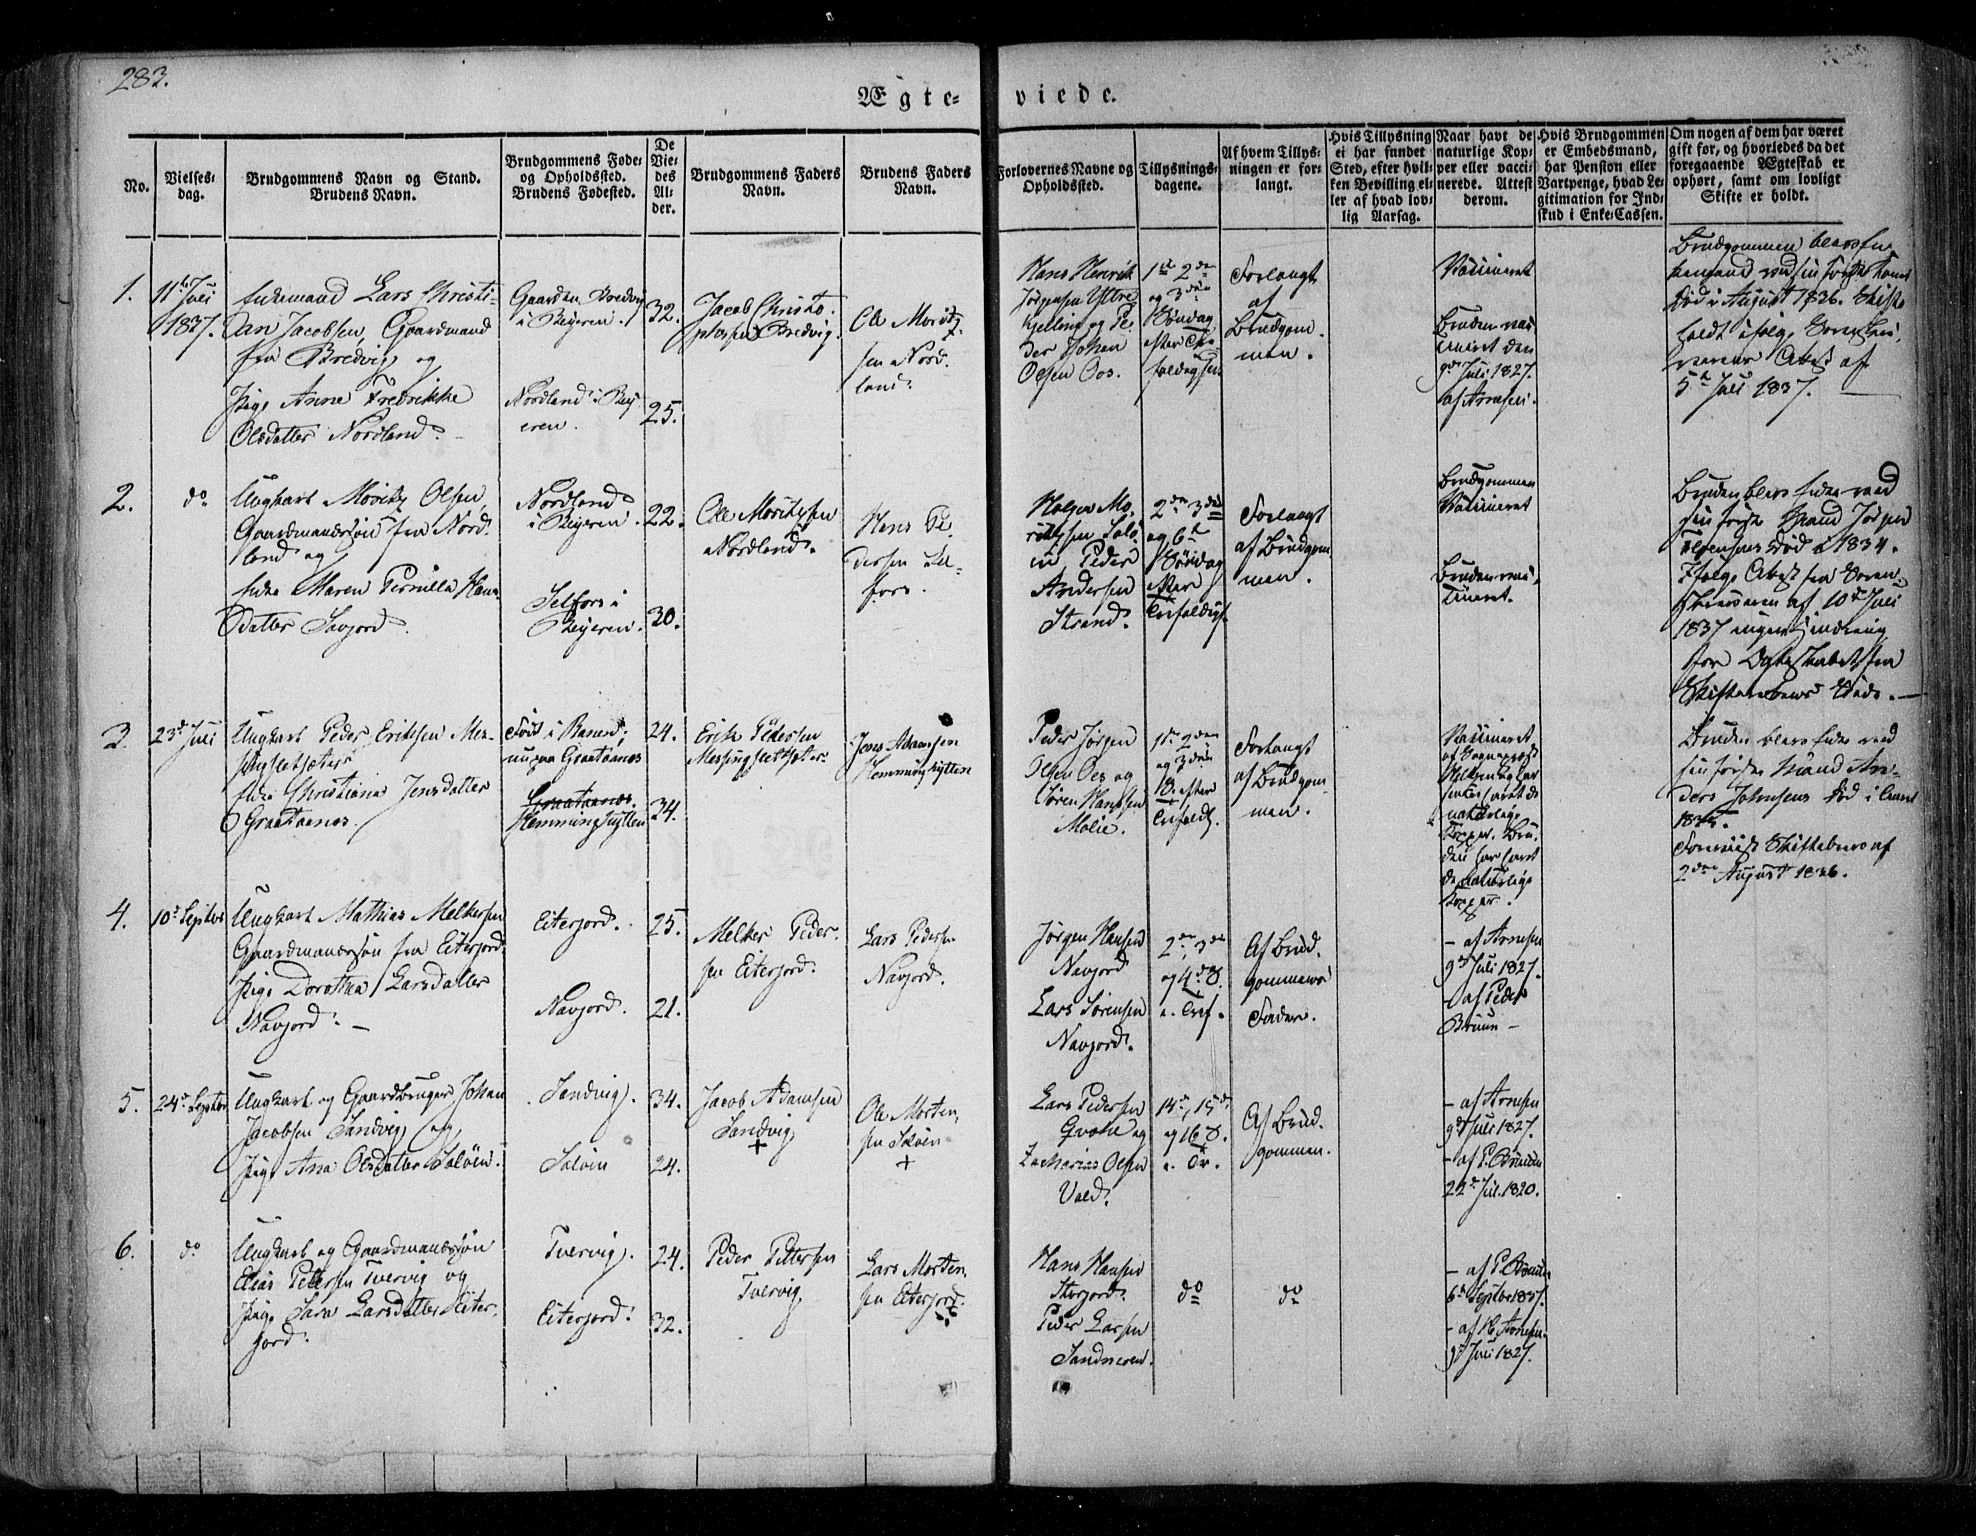 283.
Ægte-viede.
No.
Vielses-
dag.
Brudgommens Navn og Stand.
Brudens Navn.
Brudgommens Føde-
og Opholdssted.
Brudens Fødested.
De
Vie-
des
Al-
der.
Brudgommens Faders
Navn.
Brudens Faders
Navn.
Forlovernes Navne og
Opholdssted.
Tillysnings-
dagene.
Af hvem Tillys-
ningen er for-
langt.
Hvis Tillysning
ei har fundet
Sted, efter hvil-
ken Bevilling el-
ler af hvad lov-
lig Aarsag.
Naar havt de
naturlige Kop-
per eller vacci-
nerede. Attest
derom.
Hvis Brudgommen
er Embedsmand,
har Pension eller
Vartpenge, hvad Le-
gitimation for Ind-
skud i Enke-Cassen.
Om nogen af dem har været
gift før, og hvorledes da det
foregaaende Ægteskab er
ophørt, samt om lovligt
Skifte er holdt.
1.
11te Juli
1837.
Enkemand Lars Christi-
an Jacobsen, Gaardmand
fra Bredvig og
Pige Anne Fredrikke
Olsdatter Nordland.
Gaarden Bredvig
i Beyeren.
Nordland i Bey
eren.
32.
25.
Jacob Christo-
phersen Bredvig.
Ole Moritz
sen Nord
land.
Hans Henrik
Jørgensen Yttre
Kjelling og Pe
der Johan
Olsen Oos.
1ste 2den
og 3die
Søndag
efter Tre
foldigh
Forlangt
af
Brudgom
men.
Vaccineret
Bruden vac
cineret den
9de Juli 1827.
af Arnesen.
Brudgommen blev En
kemand ved sin første Kones
Død i August 1836. Skifte
holdt ifølge Sorenskri
verens Attest af
5te Juli 1837.
2.
do
Ungkarl Moritz Olsen,
Gaardmandssøn fra Nord
land og
Enke Maren Pernilla Hans
Datter Savjord.
Nordland
i Beyeren.
Selfors i
Beyeren.
22.
30.
Ole Moritzsen
Nordland.
Hans Pe
dersen Sel-
fors.
Holger Mo
ritzsen Solø
en Peder
Andersen
Strand.
2den 3die
og 6te
Søndag
efter
Trefoldigh.
Forlangt
af Brudgom
men.
Brudgommen
Vaccineret
Bruden vac
cineret.
Bruden blev Enke ved
sin første Mand Jørgen
Død i 1834.
Ifølge Attest fra Soren
skriveren af 10de Juli
1837 ingen Hindring
for Ægteskabet fra
Skifterettens Side.
3.
23de Juli
Ungkarl Peder Eriksen Mes-
singsletsæter
Enke Christiana Jensdatter
Graataanes.
Født i Ranen,
nu paa Graataanes
Graataanes.
Hemminghytten
24.
34.
Erik Pedersen
Messingsletsæter
Jens Adamsen
Hemminghytten
Peder Jørgen
Olsen Oos og
Søren Hansen
Molie.
1ste 2den
og 3die
S. efter
Trefoldh.
Forlangt
af Brudgom
men.
Vaccineret
Bru
den har havt
de naturlige
Kopper.
Bruden blev Enke ved
sin første Mand An-
ders Johnsens Død i
Skiftebrev af
2den August 1836.
4.
10de Septbr
Ungkarl Mathias Melkersen
Gaardmandssøn fra Eiterjord.
Pige Dorothea Larsdatter
Navjord.
Eiterjord.
Navjord.
25.
21.
Melker Peder-
sen Eiterjord.
Lars Pedersen
Navjord.
Jørgen Hansen
Navjord
Lars Sørensen
Navjord.
2den, 3die
og 4de S.
e. Tref.
Af Brud
gommens
Fader.
- af Arnesen
9de Juli 1827.
- af Peder
Bruun -
5.
24de Septbr
Ungkarl og Gaardbruger Johan
Jacobsen Sandvig og
Pige Ana Olsdatter Soløen.
Sandvig.
Soløen
34.
24.
Jacob Adamsen
Sandvig
+
Ole Morten
sen Soløen
+
Lars Pedersen
og
Zacharias Olsen
Vold.
14de, 15de
og 16 S.
e. Tr.
Af Brud
gommen.
- af Arnesen
9de Juli 1827.
- af P. Bruun
22de Jul. 1820.
6.
do
Ungkarl og Gaardmandssøn
Elias Pettersen Tvervig og
Pige Sara Larsdatter Eiter-
jord.
Tvervig.
Eiterjord.
24.
32.
Peder Pettersen
Tvervig
Lars Morten
sen Eiterjord.
Hans Hansen
Storjord.
Peder Larsen
Sandmoen.
do
do
- af P. Bruun
6te Septbr 1837.
- af H. Arnesen
9de Juli 1827.